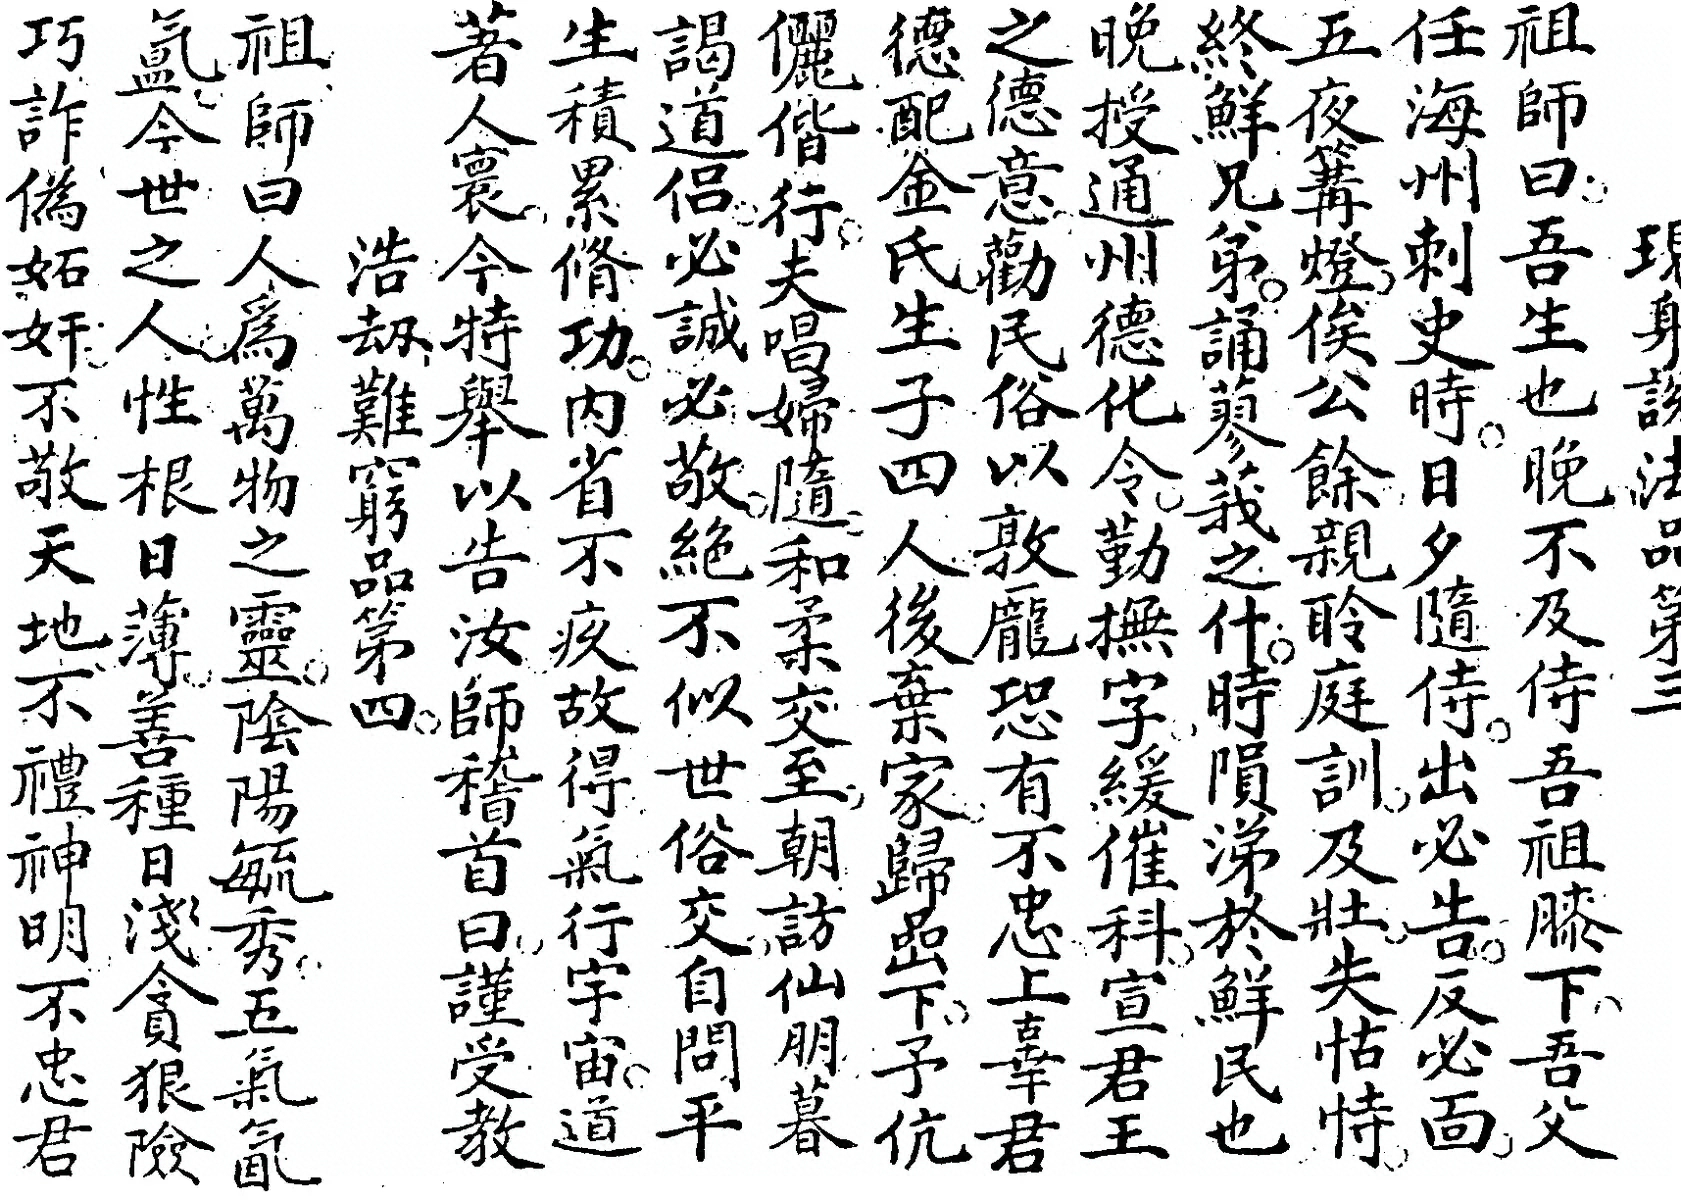 現身説法品第三
祖師曰。吾生也晩不及侍吾祖膝下。吾父
任海州刺史時。日夕隨侍。出必告。反必面。
五夜篝燈。俟公餘親聆庭訓。及壯。失怙恃。
終鮮兄弟。誦蓼莪之什。時隕涕於鮮民也
晩授通州德化令。勤撫字。緩催科。宣君王
之德意。勸民俗以敦龐恐有不忠上辜君
德配金氏。生子四人後棄家。歸嵒下。予伉
儷偕行。夫唱婦隨。和柔交至。朝訪仙朋暮
謁道侣。必誠必敬。絕不似世俗交。自問平
生積累脩功。内省不疚故得氣行宇宙。道
著人寰。今特舉以告汝。師稽首曰。謹受教
浩刼難窮品第四。
祖師曰人爲萬物之靈。陰陽毓秀。五氣氤
氲。今世之人性根日薄。善種日淺貪狠險
巧詐僞妬奸。不敬天地不禮神明不忠君